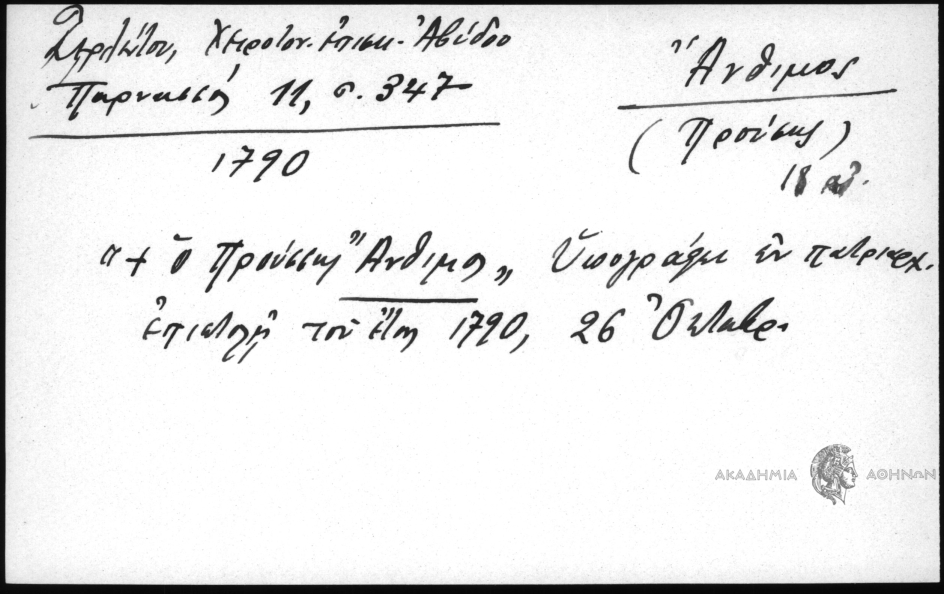 Χειροτον. ἐπισκ. Ἀβύδου
Παρνασσός 11, σ. 347
1790
Ἄνθιμος
(Προύσης)
18 αἰ.
"+ ὁ Προύσσης Ἄνθιμος„ Ὑπογράφει ἐν πατριαρχ.
ἐπιστολῇ τοῦ ἔτους 1790, 26 Ὀκτωβρ.
ΑΚΑΔΗΜΙΑ ΑΘΗΝΩΝ